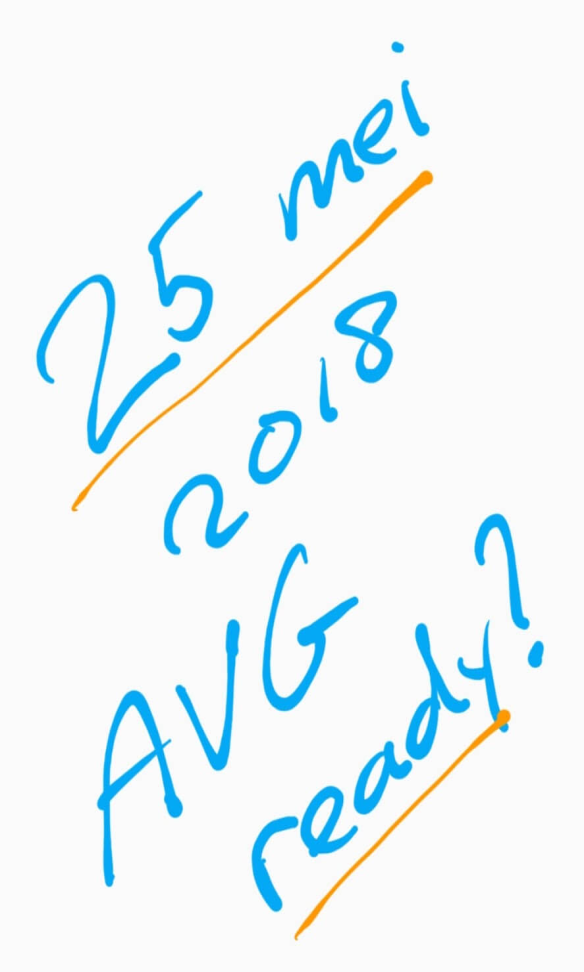 25 mei
2018
AVG
ready?